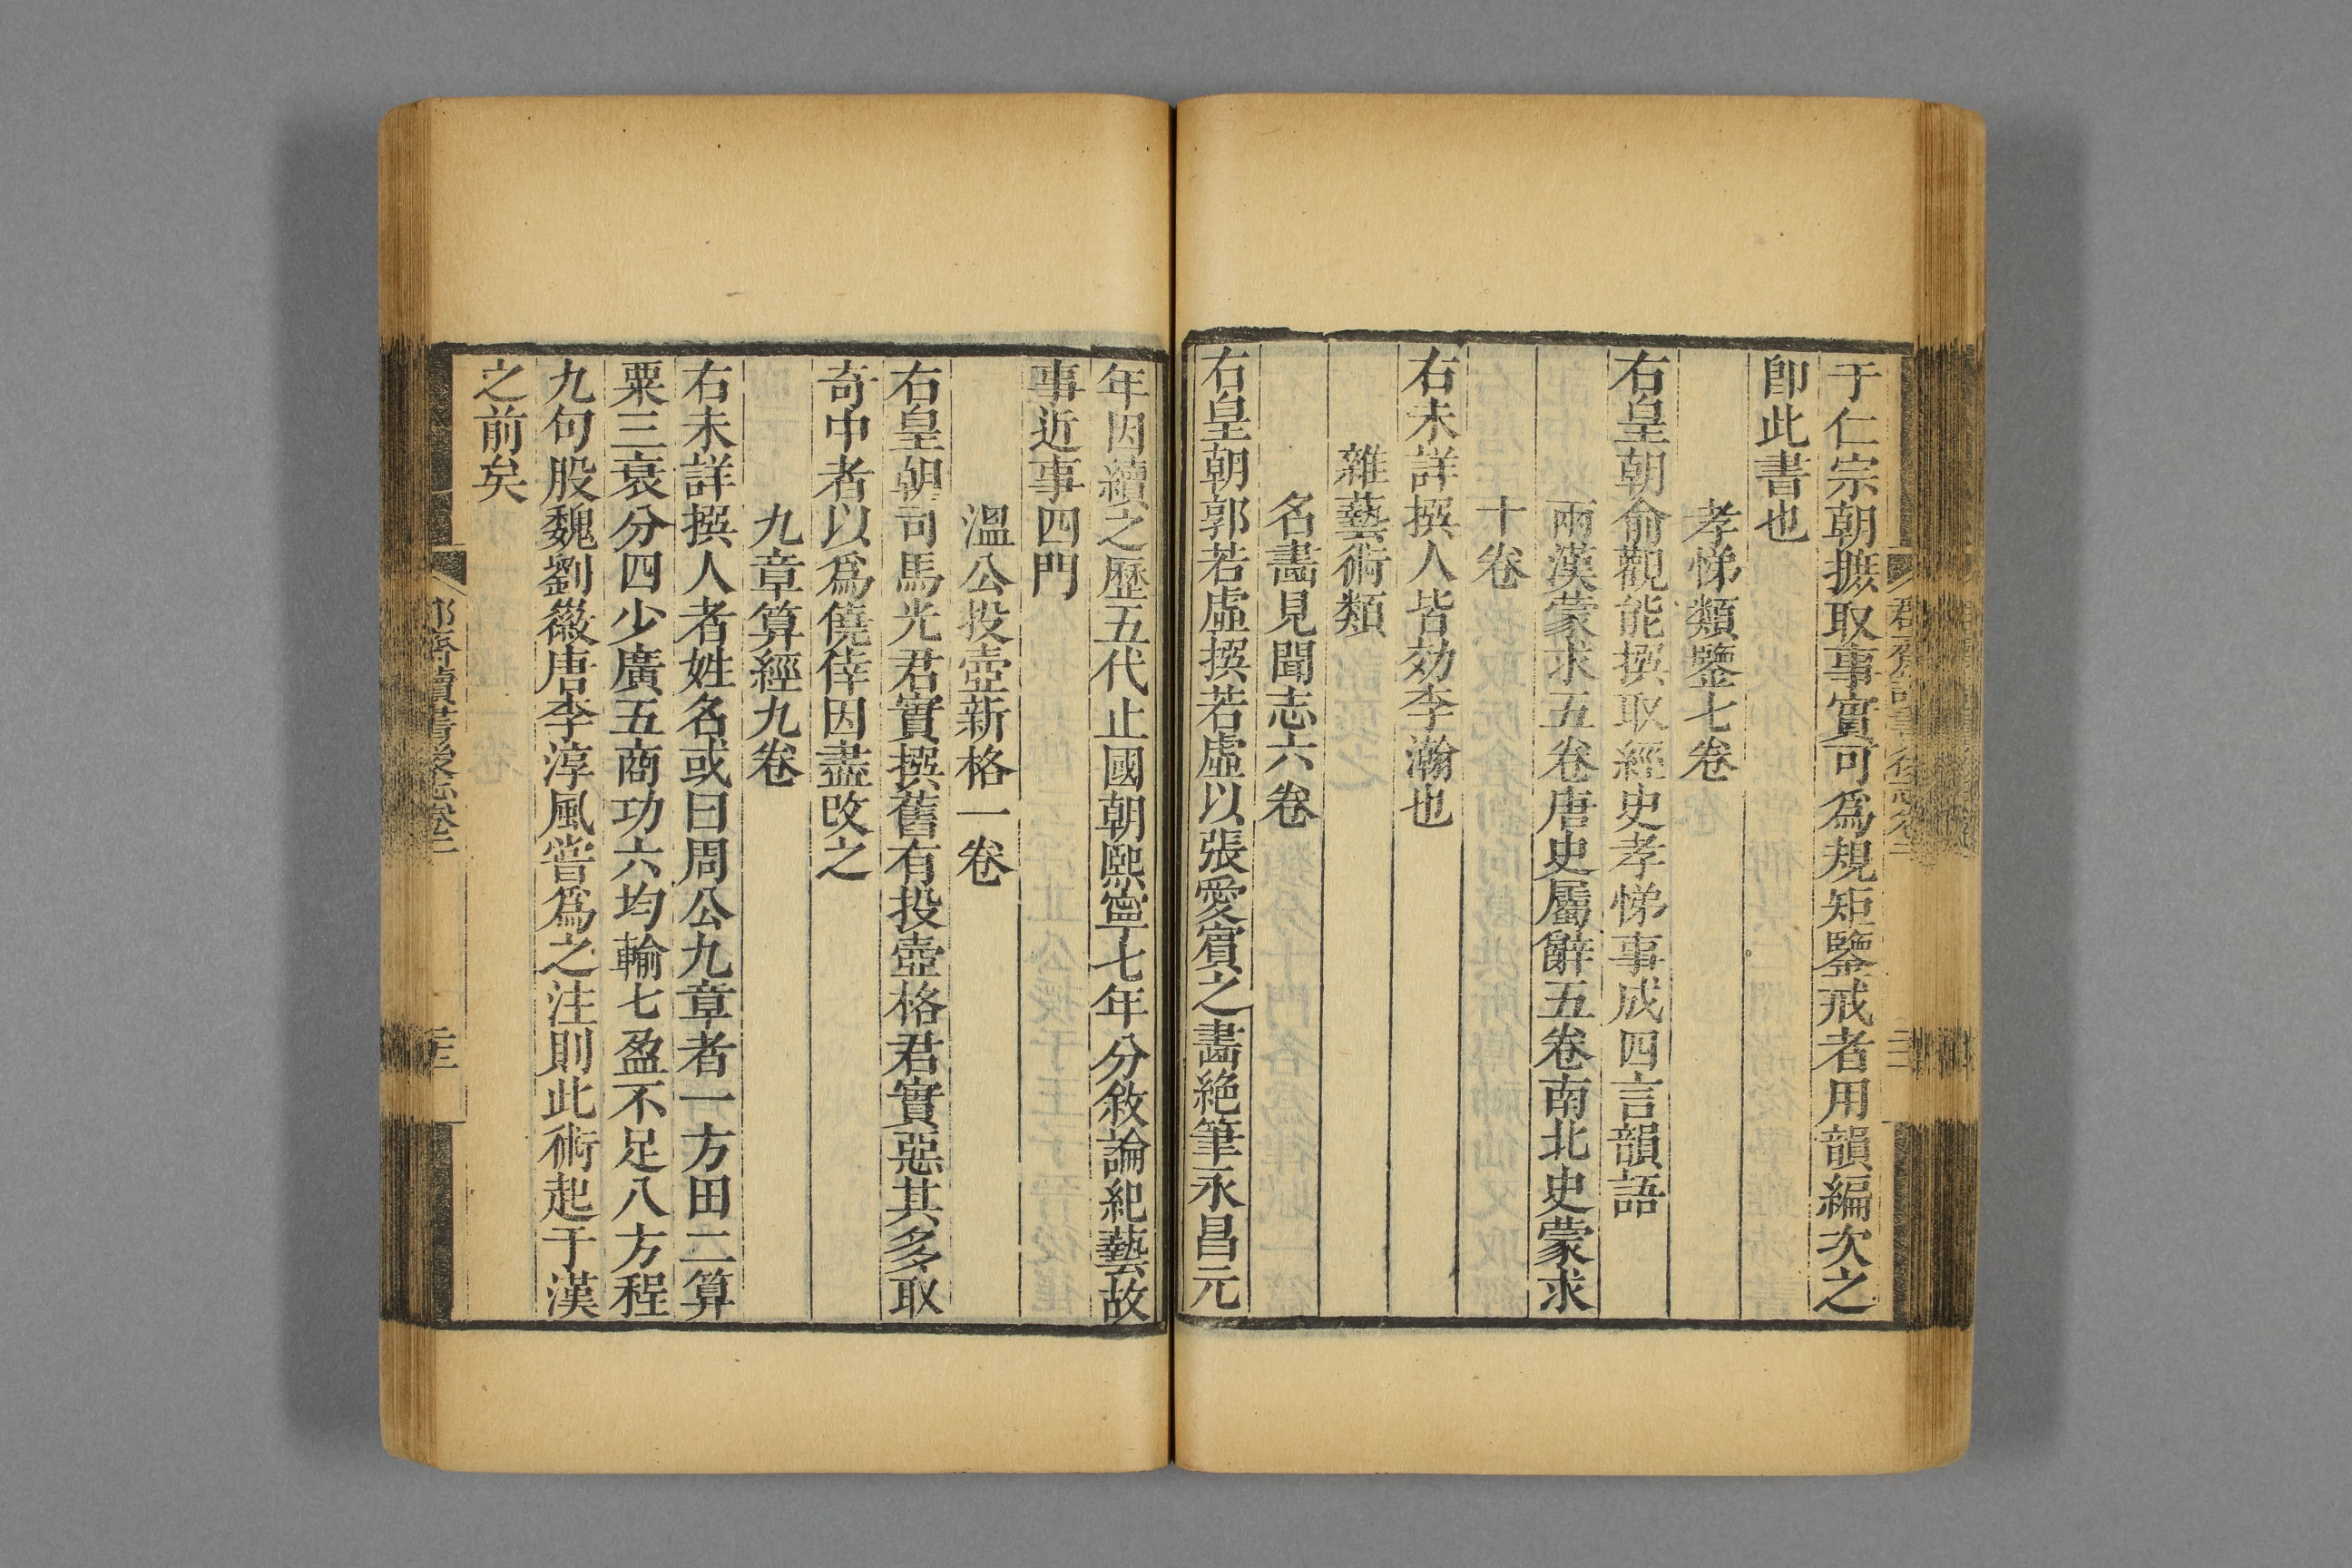 于仁宗朝摭取事實可爲規矩鑒戒者用韻編次之
卽此書也
孝悌類鑒七卷
右皇朝俞觀能撰取經史孝悌事成四言韻語
兩漢蒙求五卷唐史屬辭五卷南北史蒙求
十卷
右未詳撰人皆効李瀚也
雜藝術類
名畵見聞志六卷
右皇朝郭若虛撰若虛以張愛賓之畵絕筆永昌元
年因續之歷五代止國朝熙寧七年分敘論紀藝故
事近事四門
溫公投壺新格一卷
右皇朝司馬光君實撰舊有投壺格君實惡其多取
奇中者以爲僥倖因盡改之
九章算經九卷
右未詳撰人者姓名或曰周公九章者一方田二算
粟三衰分四少廣五商功六均輸七盈不足八方程
九句股魏劉徽唐李淳風嘗爲之注則此術起于漢
之前矣
郡齋讀書後志卷二